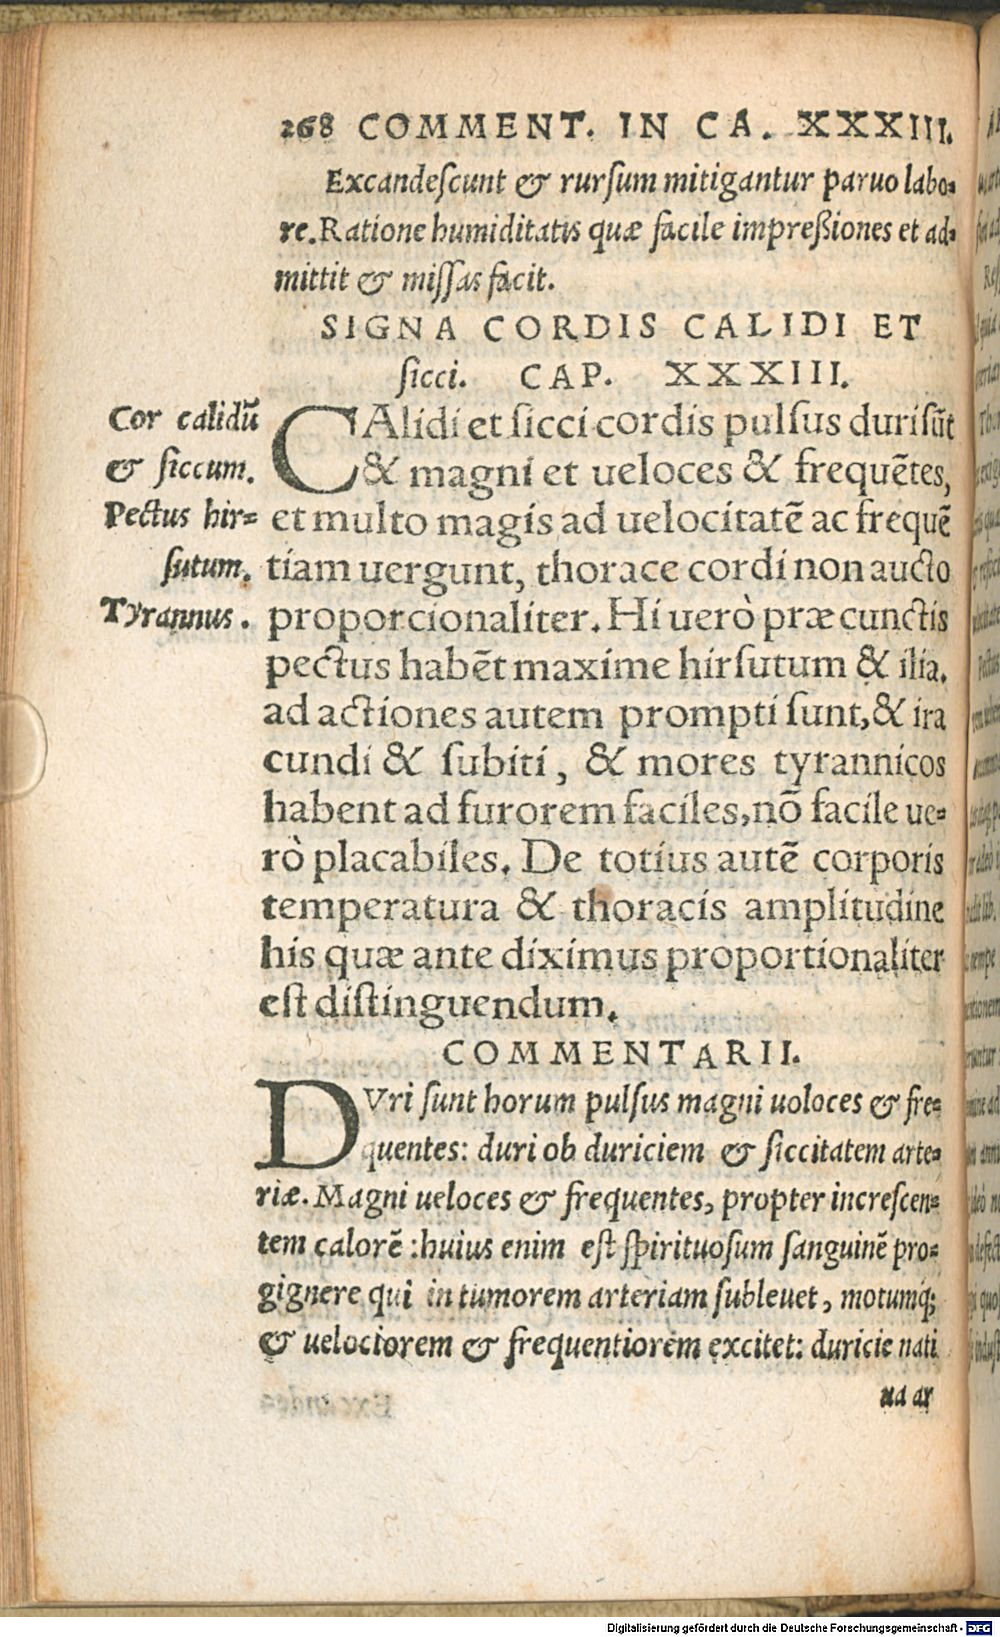 268 COMMENT. IN CA. XXXIII.
Excandeſcunt & rurſum mitigantur paruo labo-
re. Ratione humiditatis quæ facile impreßiones et ad-
mittit & miſſas facit.
SIGNA CORDIS CALIDI ET
ſicci. CAP. XXXIII.
Cor calidũ
& ſiccum.
Pectus hir-
ſutum.
Tyrannus.
CAlidi et ſicci cordis pulſus duri ſũt
& magni et ueloces & frequẽtes,
et multo magis ad uelocitatẽ ac frequẽ
tiam uergunt, thorace cordi non aucto
proporcionaliter. Hi uerò præ cunctis
pectus habẽt maxime hirſutum & ilia.
ad actiones autem prompti ſunt, & ira
cundi & ſubiti, & mores tyrannicos
habent ad furorem faciles, nõ facile ue-
rò placabiles. De totius autẽ corporis
temperatura & thoracis amplitudine
his quæ ante diximus proportionaliter
eſt diſtinguendum.
COMMENTARII.
DVri ſunt horum pulſus magni uoloces & fre-
quentes: duri ob duriciem & ſiccitatem arte-
riæ. Magni ueloces & frequentes, propter increſcen-
tem calorẽ: huius enim eſt ſpirituoſum ſanguinẽ pro-
gignere qui in tumorem arteriam ſubleuet, motumq́;
& uelociorem & frequentiorem excitet: duricie nati
ua ar
Digitalisierung gefördert durch die Deutsche Forschungsgemeinschaft - DFG